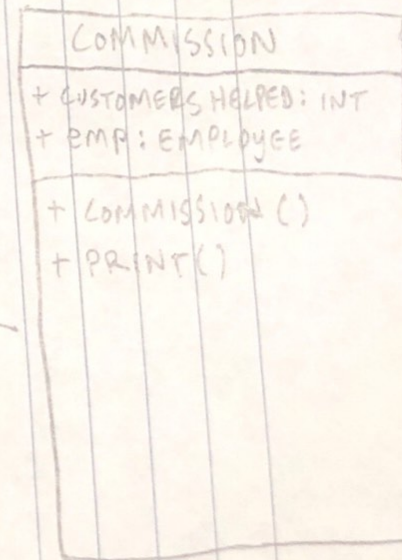 COMMISSION
+ CUSTOMERS HELPED: INT
+ EMP: EMPLOYEE
+ COMMISSION()
+ PRINT()